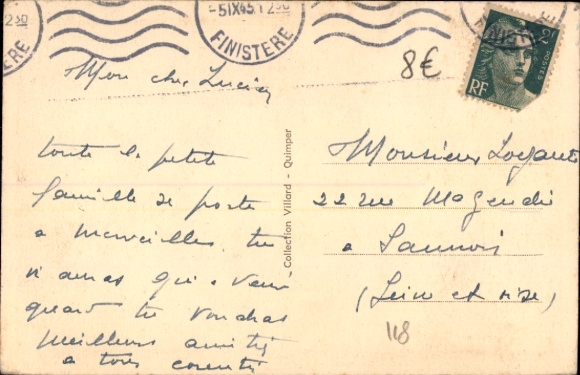 2 30
-5 IX 45 12 30
FINISTERE
FINISTERE
FINISTERE
2F
POSTES
RF
8€
Mon cher Lucien
toute la petite
famille se porte
a merveilles, tu
n'auras qu'a venir
quand tu voudras
Meilleurs amitiés
a tous
Collection Villard - Quimper
Monsieur
22 rue Magendie
a Sannois
(Seine et oise)
118